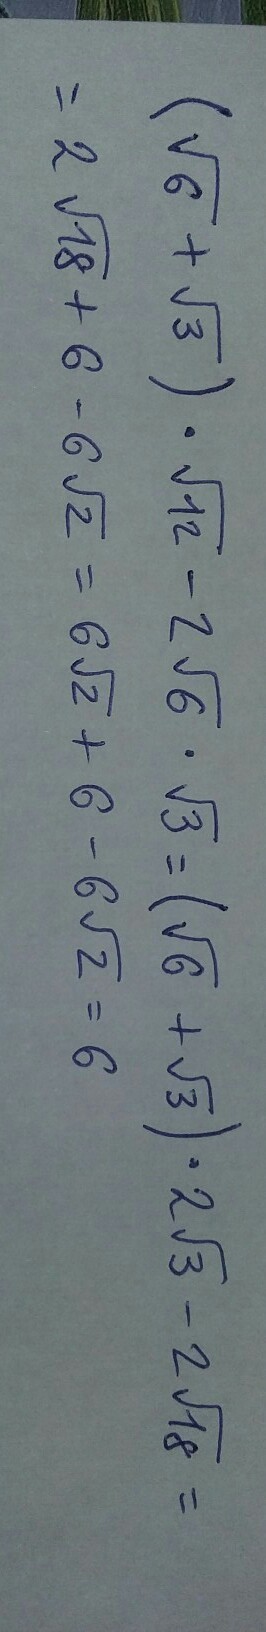 (√6 + √3) · √12 - 2√6 · √3 = (√6 + √3) · 2√3 - 2√18 =
= 2√18 + 6 - 6√2 = 6√2 + 6 - 6√2 = 6